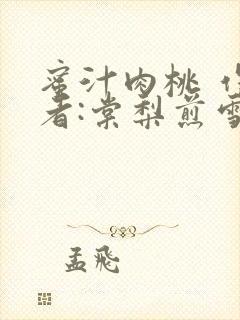 蜜汁肉桃
者:棠梨煎雪
孟飛